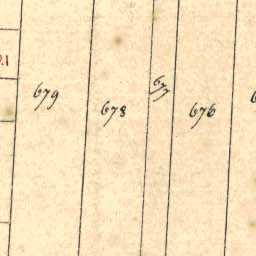 679
678
677
676